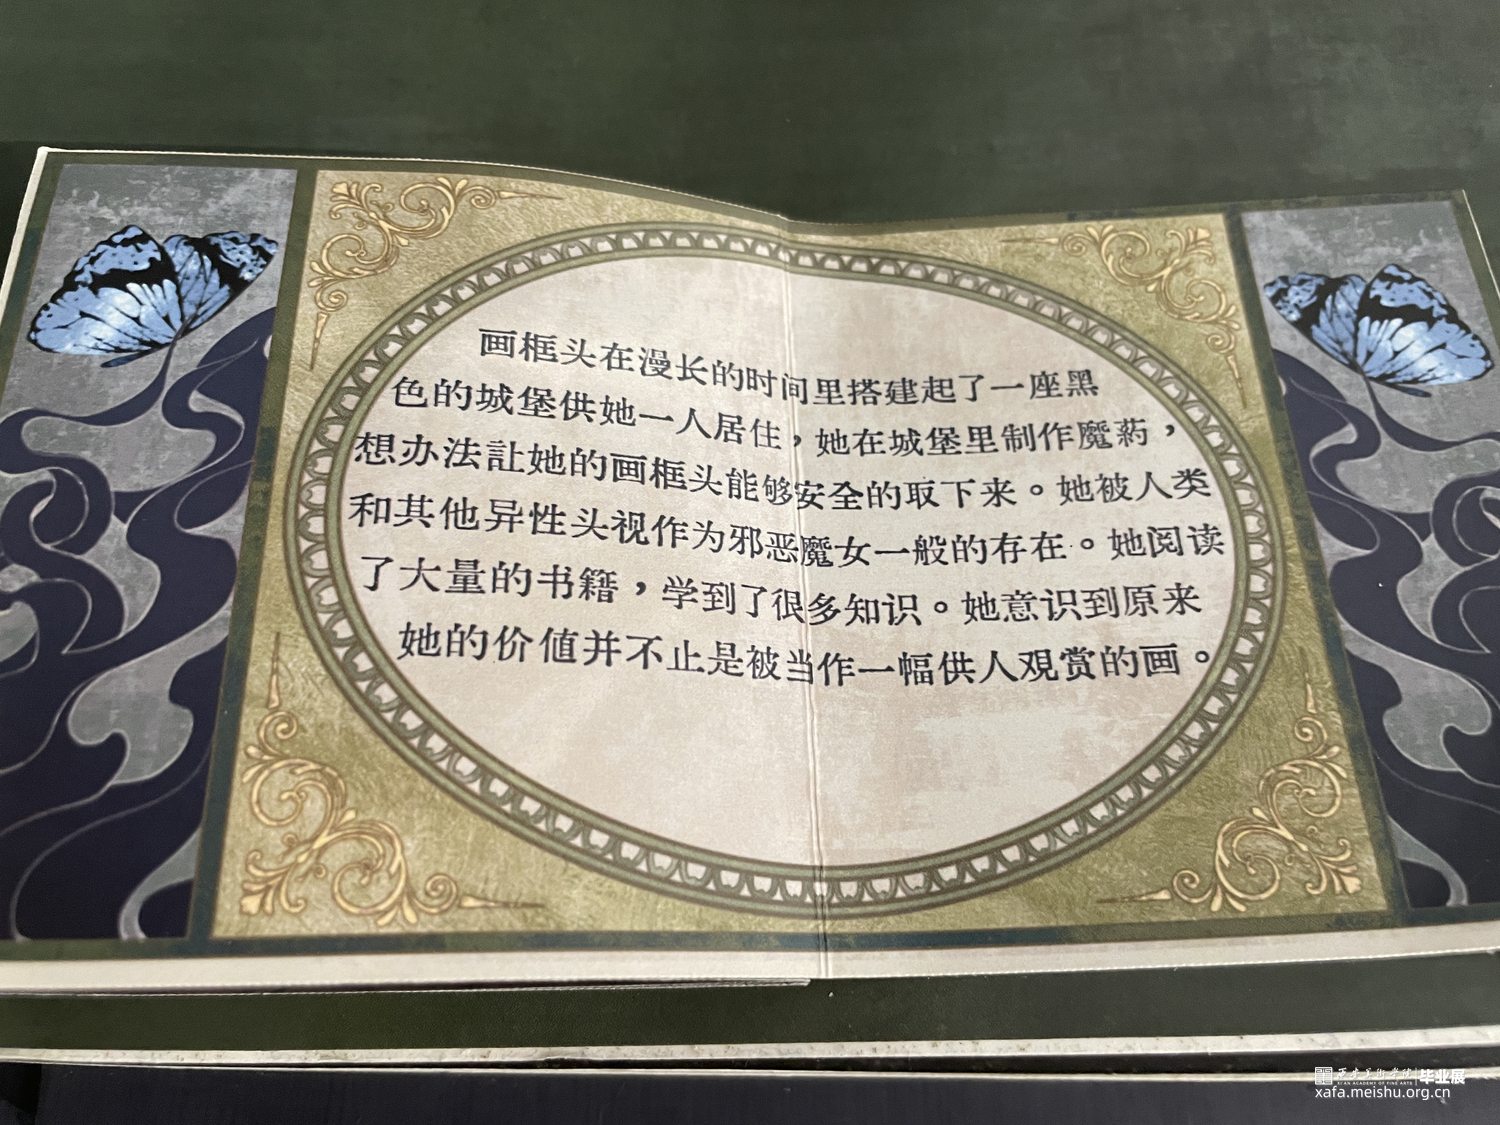 画框头在漫长的时间里搭建起了一座黑
色的城堡供她一人居住，她在城堡里制作魔药，
想办法讓她的画框头能够安全的取下来。她被人类
和其他异性头视作为邪恶魔女一般的存在。她阅读
了大量的书籍，学到了很多知识。她意识到原来
她的价值并不止是被当作一幅供人观赏的画。
西安美术学院 毕业展
XI'AN ACADEMY OF FINE ARTS
xafa.meishu.org.cn